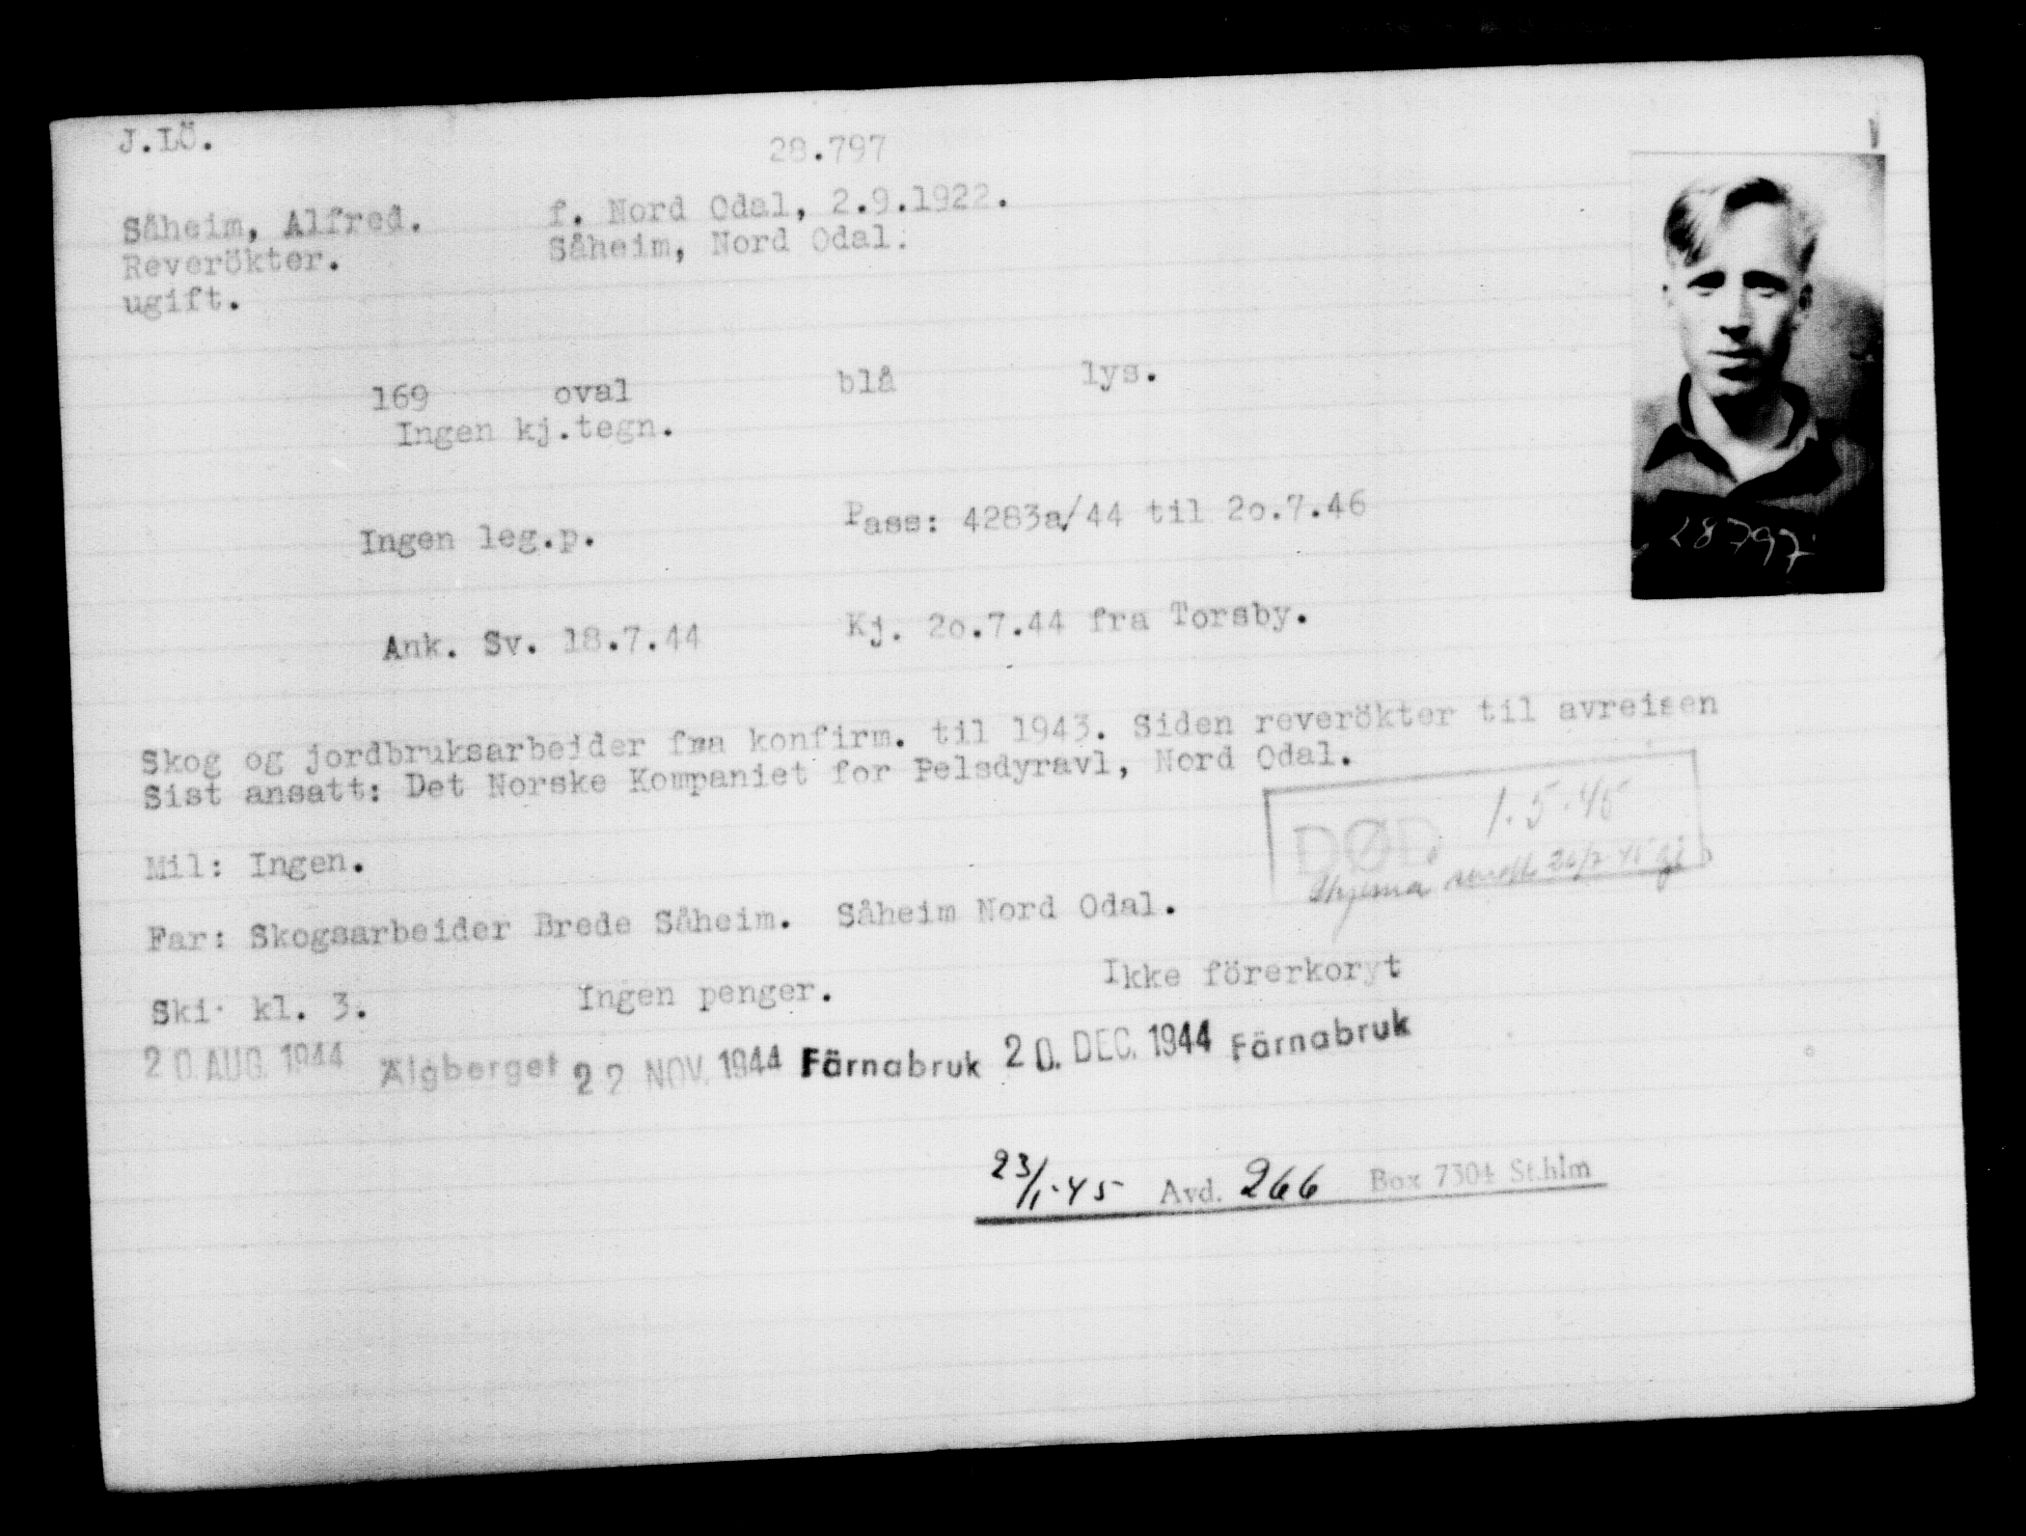 J.LÖ.
28.797
Såheim, Alfred. f. Nord Odal, 2.9.1922.
Reverökter. Såheim, Nord Odal.
ugift.
169 oval blå lys.
Ingen kj.tegn.
Ingen leg.p. Pass: 4283a/44 til 2o.7.46
28797
Ank. Sv. 18.7.44 Kj. 2o.7.44 fra Torsby.
Skog og jordbruksarbeider fra konfirm. til 1943. Siden reverökter til avreisen
Sist ansatt: Det Norske Kompaniet for Pelsdyravl, Nord Odal.
DØD 1.5.45
Mil: Ingen.
Skjema sendt 45
Far: Skogsarbeider Brede Såheim. Såheim Nord Odal.
Ski kl. 3. Ingen penger. Ikke förerkoryt
20. AUG. 1944 Älgberget 22 NOV. 1944 Färnabruk 20. DEC. 1944 Färnabruk
23/1-45 Avd. 266 Box 7304 St.hlm